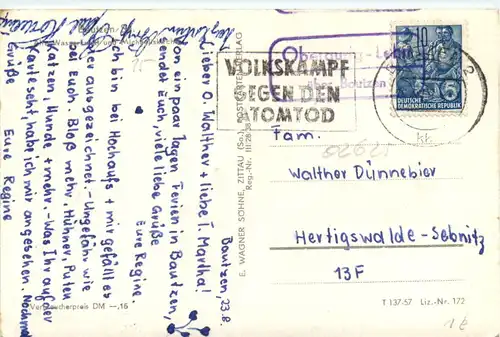 Bautzen, 23.8.
Lieber O. Walther + liebe T. Martha!
Von ein paar Tagen Ferien in Bautzen,
sendet Euch, viele liebe Grüße
Eure Regine.
Ich bin bei Hochaufs + mir gefällt es
hier ausgezeichnet. Ungefähr wie
bei Euch. Bloß mehr, Hühner, Puten
Katzen, Hunde + mehr. – Was Ihr auf der
Karte seht, hab ich mir angesehen. Nochmal
Grüße
Eure Regine
Verbraucherpreis DM –,16
E. WAGNER SÖHNE, ZITTAU (Sa.) POSTKARTENVERLAG
VOLKSKAMPF
GEGEN DEN
ATOMTOD
10
+5
DEUTSCHE
DEMOKRATISCHE REPUBLIK
Fam.
Walther Dünnebier
Hertigswalde-Sebnitz
13F
T 137-57 Liz.-Nr. 172